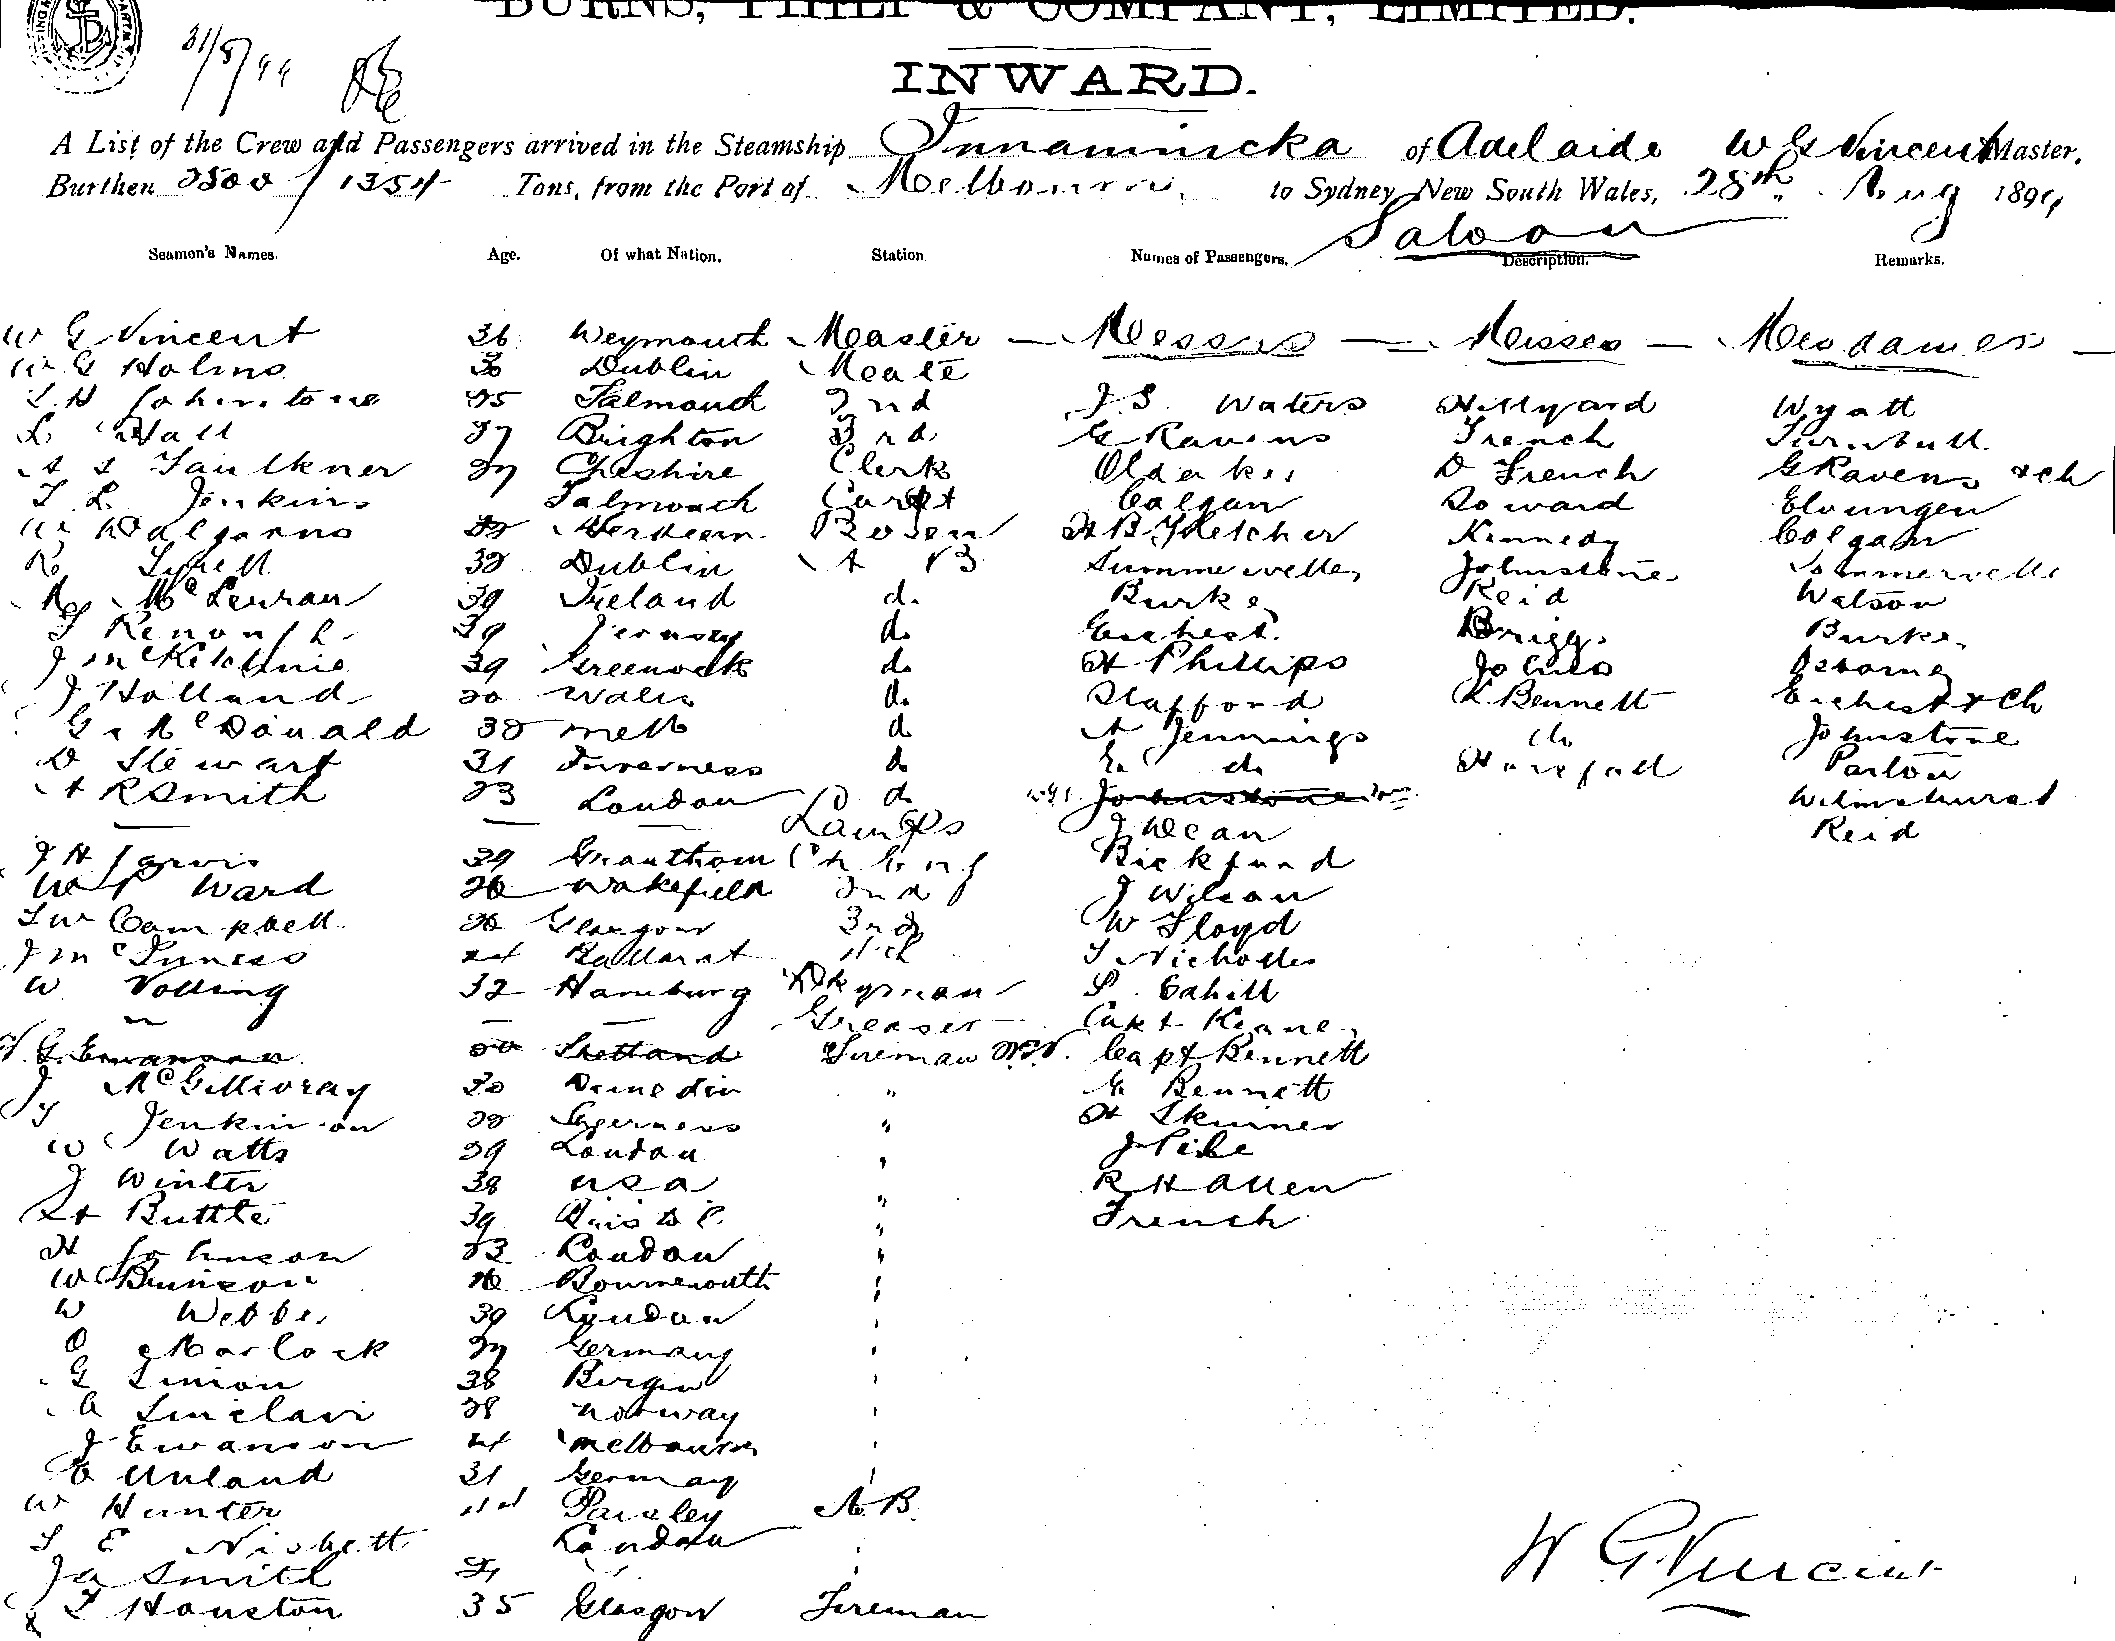 BURNS, PHILP & COMPANY, LIMITED.
31/8/99
INWARD.
A List of the Crew and Passengers arrived in the Steamship Innamincka of Adelaide W G Vincent Master.
Burthen 2500 / 1354 Tons, from the Port of Melbourne to Sydney New South Wales, 28th Aug 1899
Saloon
Seamen's Names. Age. Of what Nation. Station Names of Passengers. Description. Remarks.
W G Vincent 36 Weymouth Master — Messrs — Misses — Mesdames —
W G Holms 30 Dublin Mate
J. H Johnstone 25 Falmouth 2nd J. S. Waters Hillyard Wyatt
L Hall 27 Brighton 3rd G Ravens French Turnbull
A S Faulkner 27 Cheshire Clerk Oldakes D French G Ravens & ch
T L Jenkins Falmouth Carpt Colgan Soward Elvungen
W Dalgarno Aberdeen Bosen H B Fletcher Kennedy Colgan
R Tyrell 38 Dublin A B Summervelle Johnstone Sommervelle
A McLerran 39 Ireland do Burke Reid Watson
T Renouf 29 Jersey do Eschest Briggs Burke
J McKitchnie 39 Greenock do H Phillips Johns Osborne
J Holland 20 Wales do Stafford L Bennett Eschest & Ch
G McDonald 38 Melb do A Jennings do Johnstone
D Stewart 31 Inverness do E do Horsfall Parlow
A R Smith 23 London do Johnstone Wilmshurst
— — — Lamps J Dean Reid
J H Jarvis 39 Grantham Ch Eng Bickford
W P Ward 26 Wakefield 2nd J Wilson
J W Campbell 26 Glasgow 3rd W Floyd
J McInness 24 Ballarat 4th T Nicholls
W Volling 32 Hamburg Dkyman P. Cahill
— — — Greaser — Capt Keane
J. G. Swanson Shetland Fireman Capt Bennett
J McGillivray 30 Dunedin " G Bennett
J Jenkinson 28 " H Skinner
W Watts 29 London " J Pile
J Winter 38 USA " R H Allen
H Buttle 39 Bristol " French
H Johnson 23 London "
W Brunson 26 Bournemouth "
W Webber 39 London "
O Marlock 27 Germany "
G Simon 38 Bergen "
A Sinclair 28 Norway "
J Swanson 24 Melbourne "
C Unland 31 Germany "
W Hunter Paisley A. B.
T E Nisbett London
J A Smith
T Houston 35 Glasgow Fireman
W G Vincent